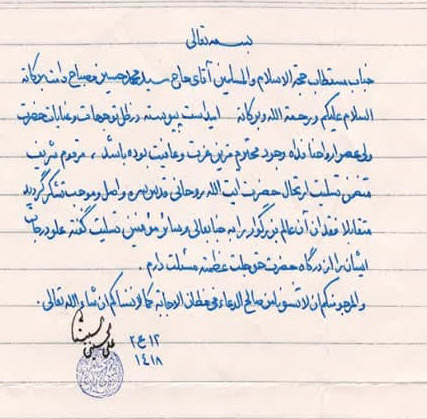 بسمه تعالی
جناب مستطاب حجة الاسلام والمسلمین آقای حاج سید محمد حسین مصباح دامت برکاته
السلام علیکم ورحمة الله وبرکاته امید است پیوسته در ظل توجهات و عنایات حضرت
ولی عصر ارواحنا فداه وجود محترم قرین عزت و عافیت بوده باشد، مرقوم شریف
متضمن تسلیت ارتحال حضرت آیت الله روحانی قدس سره واصل و موجب تشکر گردید
متقابلا فقدان آن عالم بزرگوار را به جنابعالی و سائر مؤمنین تسلیت گفته علو درجات
ایشان را از درگاه حضرت حق جلت عظمته مسئلت دارم.
والمرجو منکم ان لا تنسونا من صالح الدعاء فی مظان الاجابة کما لا ننساکم ان شاء الله تعالی.
۱۲ ع ۲
۱۴۱۸